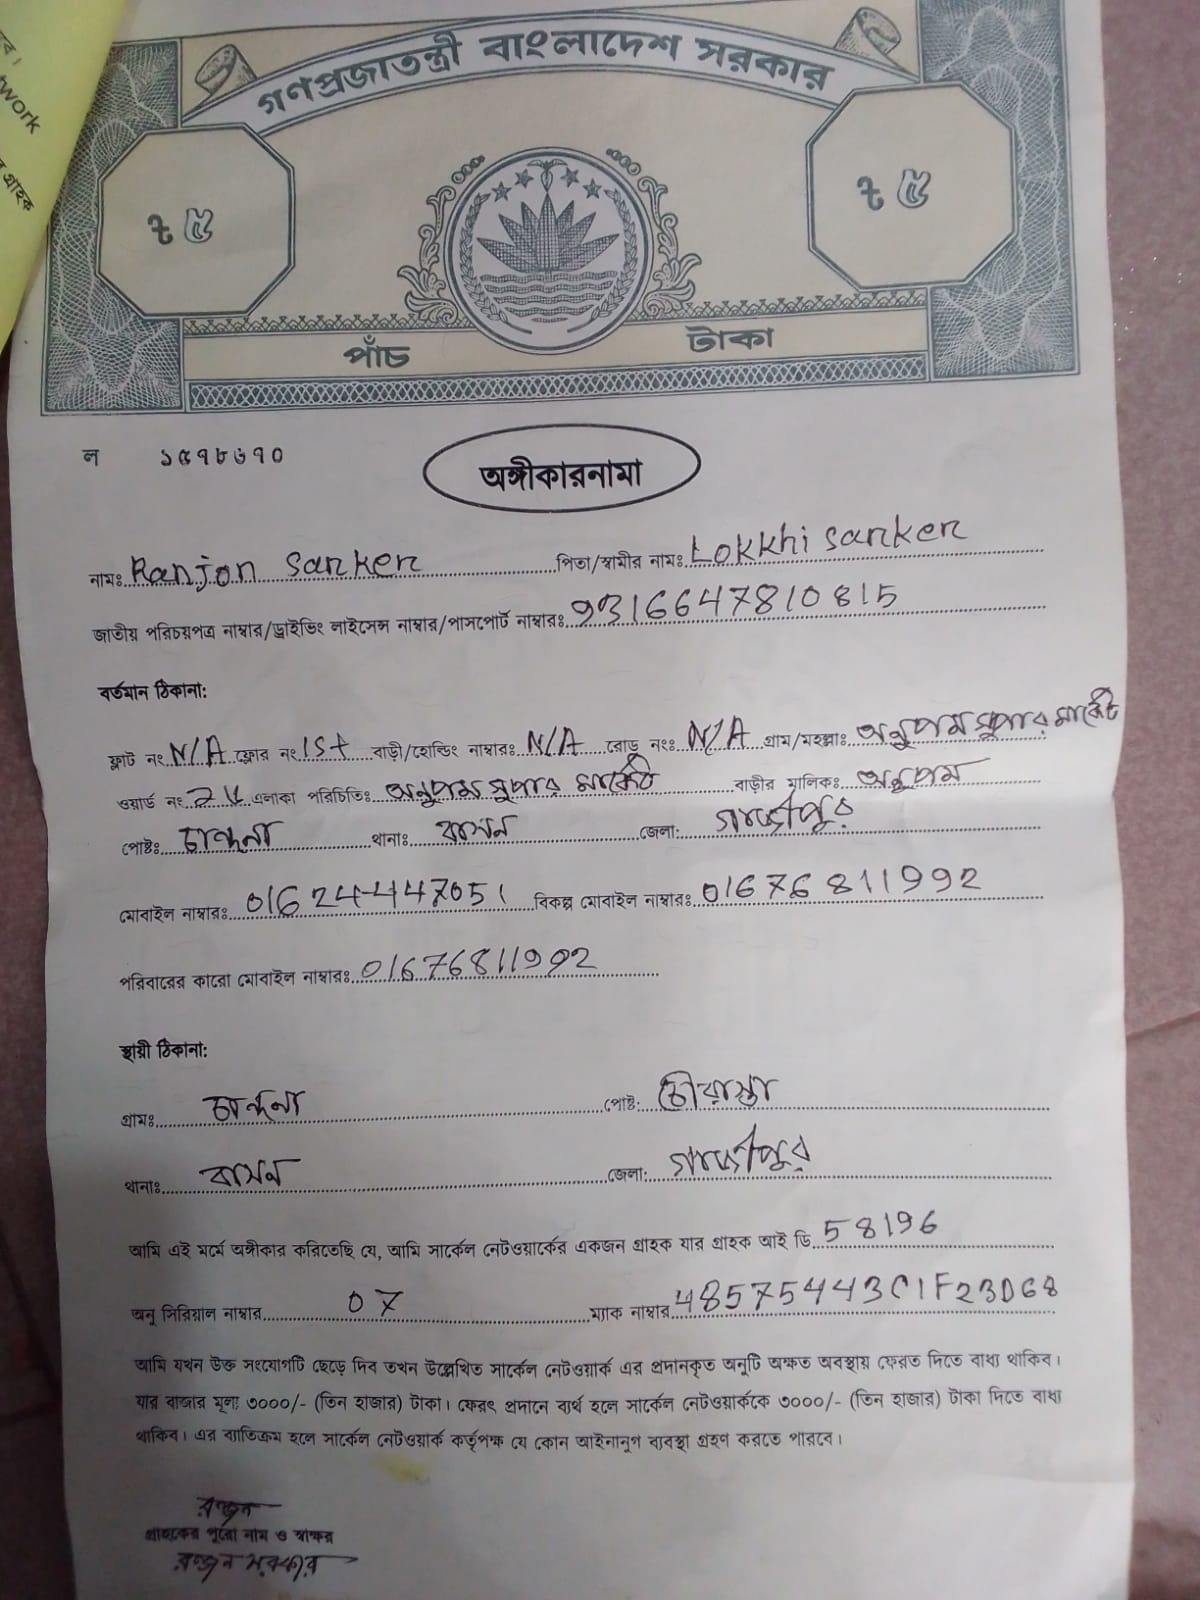 গণপ্রজাতন্ত্রী বাংলাদেশ সরকার
৳ ৫
৳ ৫
পাঁচ টাকা
ল ১৫৭৮৬৭০
অঙ্গীকারনামা
নামঃ Ranjon Sarker পিতা/স্বামীর নামঃ Lokkhi Sarker
জাতীয় পরিচয়পত্র নাম্বার/ড্রাইভিং লাইসেন্স নাম্বার/পাসপোর্ট নাম্বারঃ 9316647810815
বর্তমান ঠিকানা:
ফ্লাট নং N/A ফ্লোর নং 1st বাড়ী/হোল্ডিং নাম্বারঃ N/A রোড নংঃ N/A গ্রাম/মহল্লাঃ অনুপম সুপার মার্কেট
ওয়ার্ড নং এলাকা পরিচিতিঃ অনুপম সুপার মার্কেট বাড়ীর মালিকঃ অনুপম
পোষ্টঃ চান্দনা থানাঃ বাসন জেলা: গাজীপুর
মোবাইল নাম্বারঃ 01624447051 বিকল্প মোবাইল নাম্বারঃ 01676811992
পরিবারের কারো মোবাইল নাম্বারঃ 01676811992
স্থায়ী ঠিকানা:
গ্রামঃ চান্দনা পোষ্ট: চৌরাস্তা
থানাঃ বাসন জেলা: গাজীপুর
আমি এই মর্মে অঙ্গীকার করিতেছি যে, আমি সার্কেল নেটওয়ার্কের একজন গ্রাহক যার গ্রাহক আই ডি 58196
অনু সিরিয়াল নাম্বার 07 ম্যাক নাম্বার 48575443C1F23D68
আমি যখন উক্ত সংযোগটি ছেড়ে দিব তখন উল্লেখিত সার্কেল নেটওয়ার্ক এর প্রদানকৃত অনুটি অক্ষত অবস্থায় ফেরত দিতে বাধ্য থাকিব।
যার বাজার মূল্য ৩০০০/- (তিন হাজার) টাকা। ফেরৎ প্রদানে ব্যর্থ হলে সার্কেল নেটওয়ার্ককে ৩০০০/- (তিন হাজার) টাকা দিতে বাধ্য
থাকিব। এর ব্যাতিক্রম হলে সার্কেল নেটওয়ার্ক কর্তৃপক্ষ যে কোন আইনানুগ ব্যবস্থা গ্রহণ করতে পারবে।
রঞ্জন
গ্রাহকের পুরো নাম ও স্বাক্ষর
রঞ্জন সরকার
work
গ্রাহক